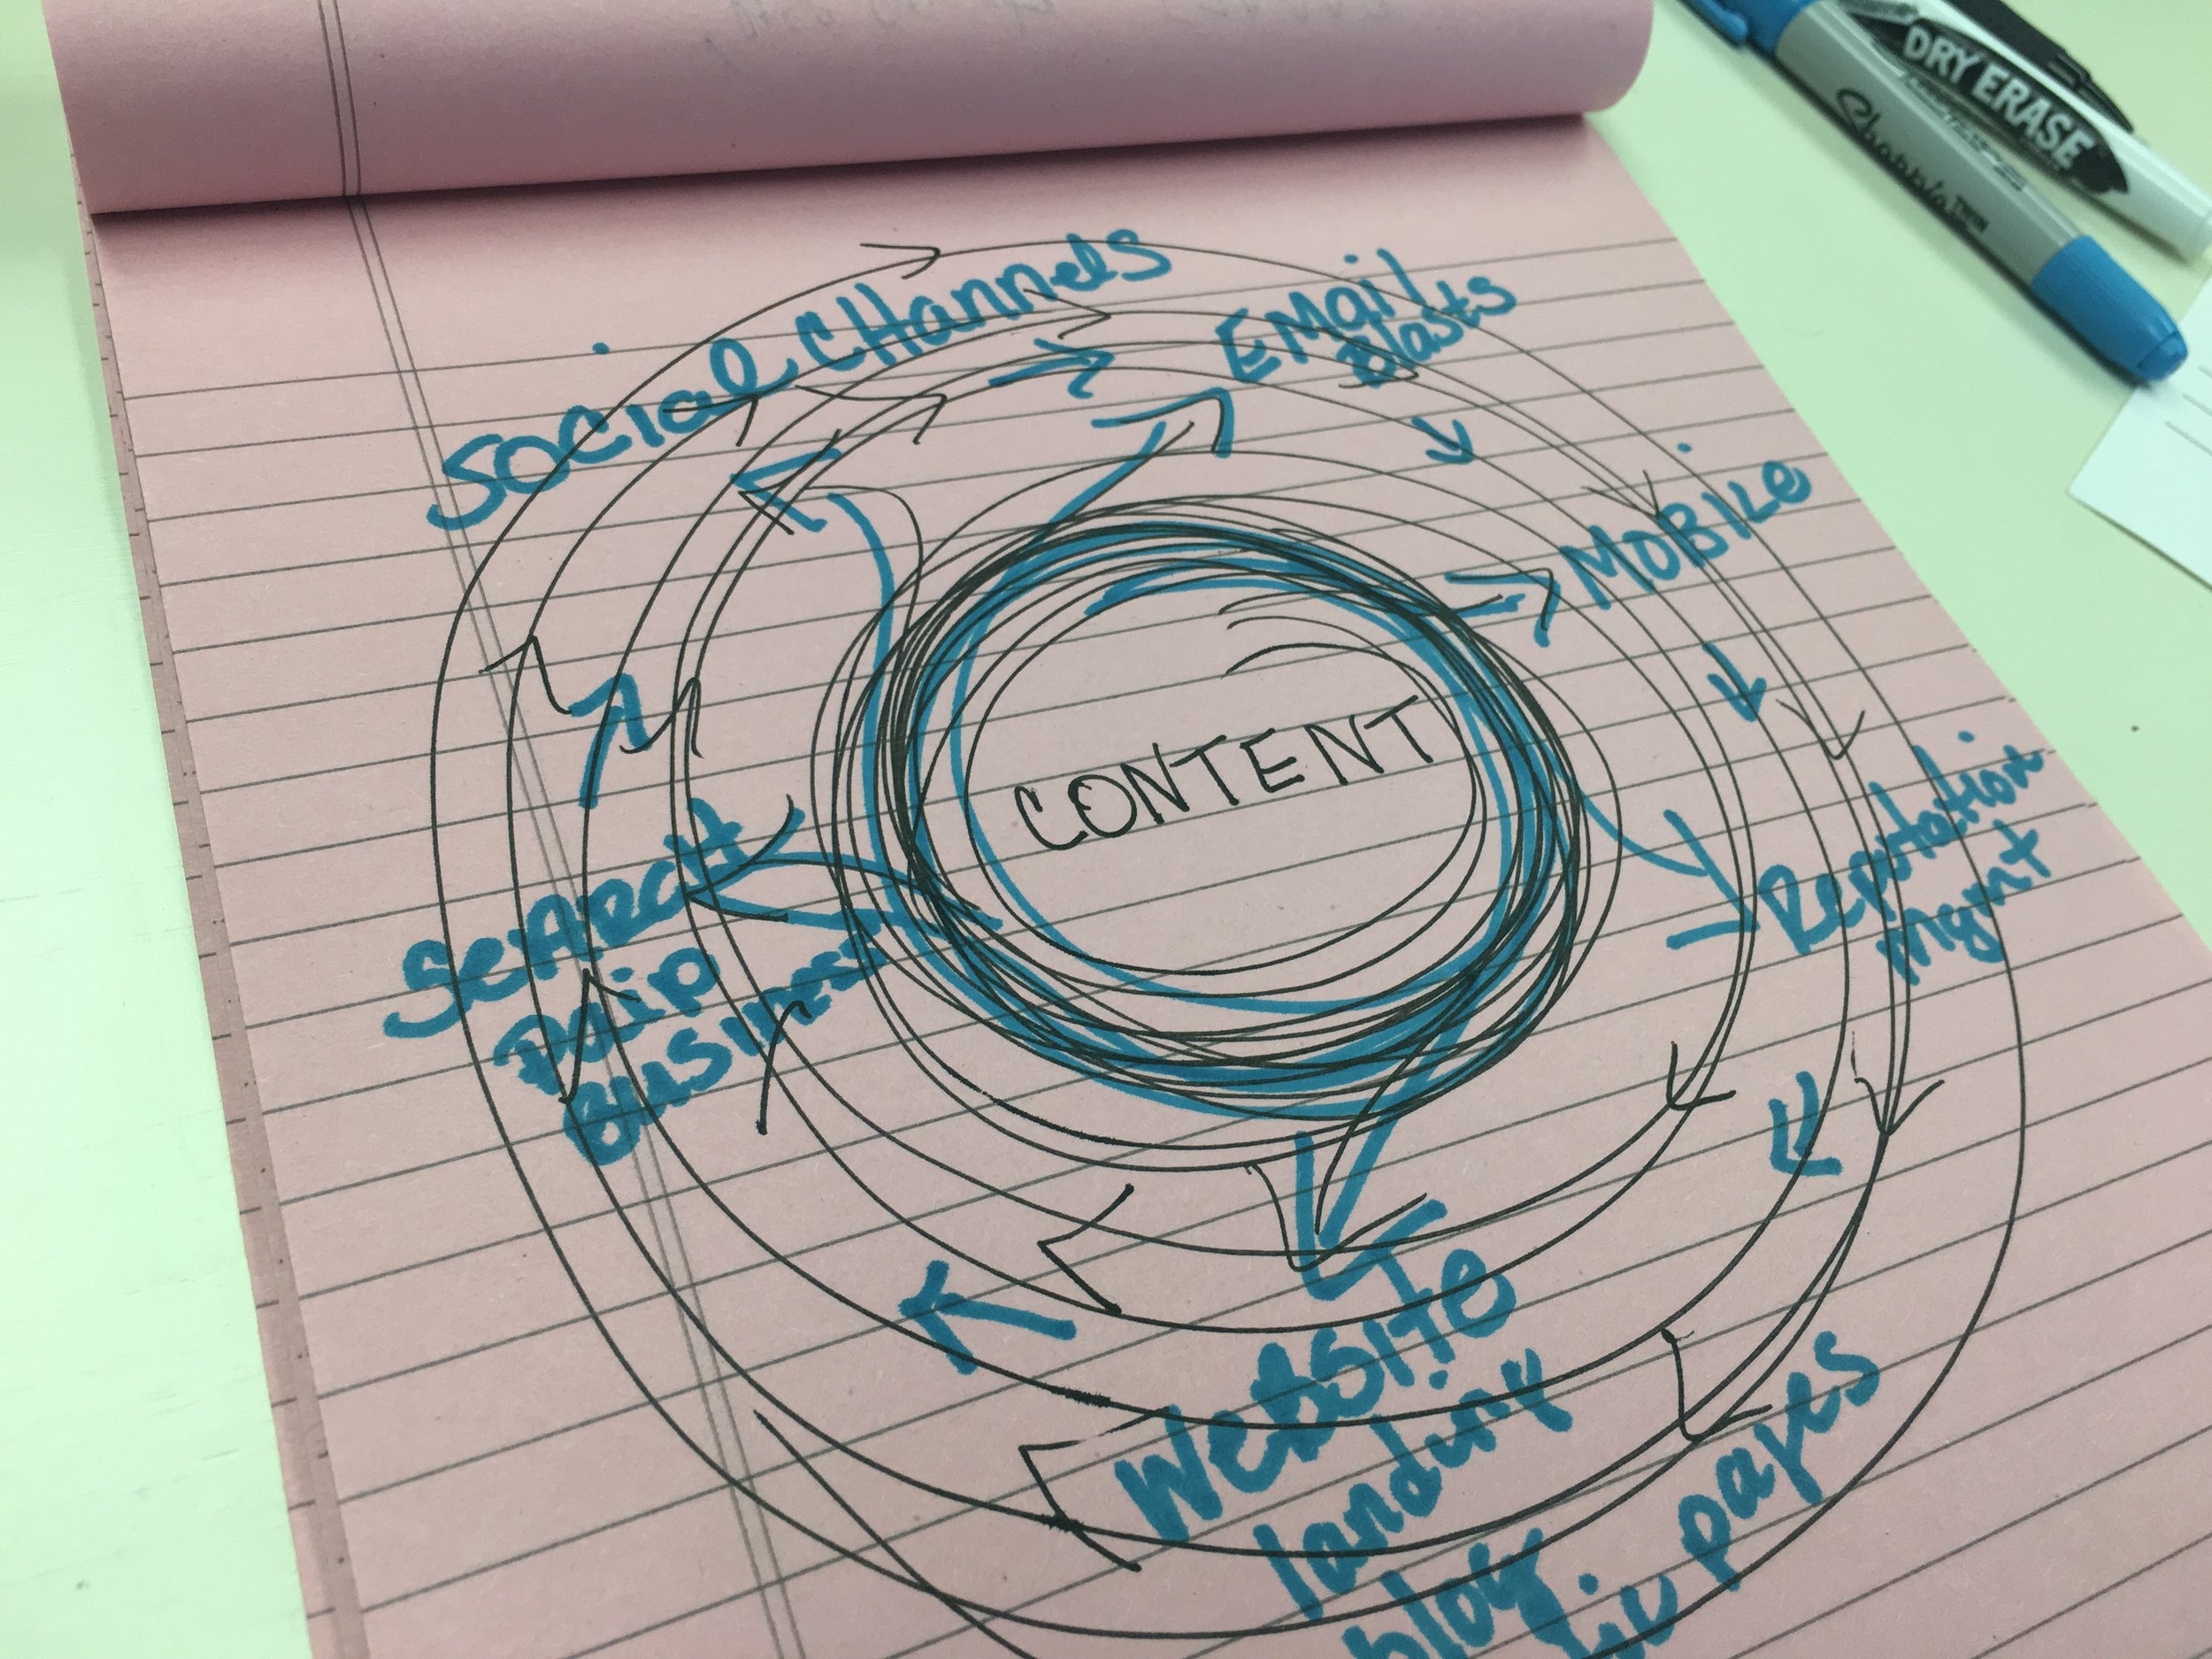 DRY ERASE
Sharpie
TWIN
SOCIAL CHannels
EMAIL
Blasts
MOBILE
CONTENT
Reputation
Mgmt
SEARCH
PAID
BUSINESS
WEBSITE
landing
pages
blog